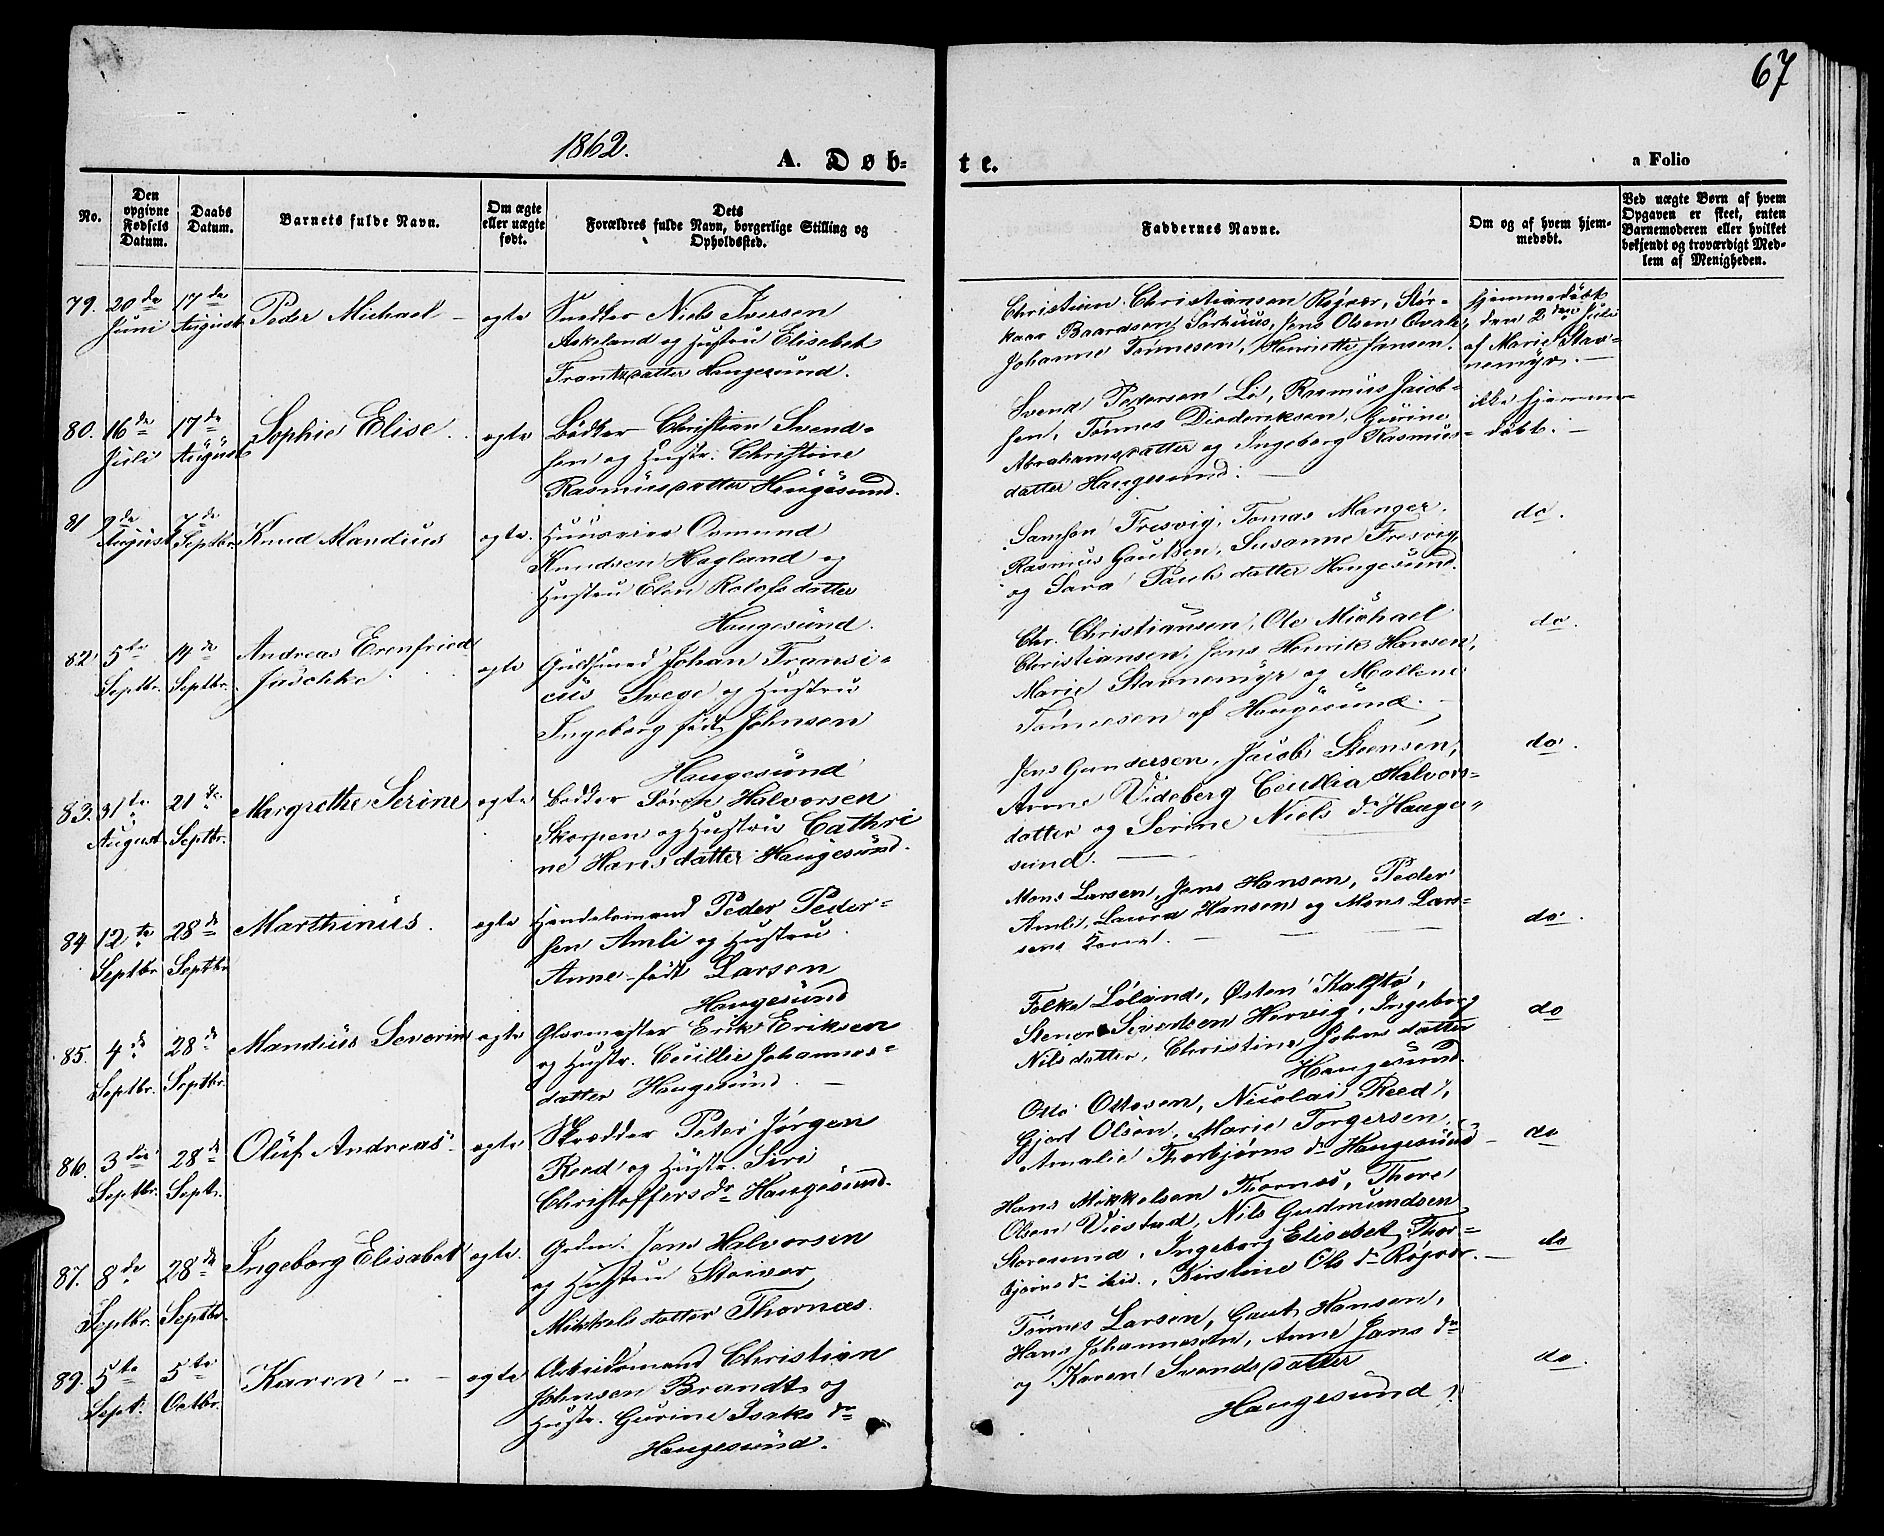 67
1862.
A. Døb-
te.
a Folio
No.
Den
opgivne
Fødsels
Datum.
Daabs
Datum.
Barnets fulde Navn.
Om ægte
eller uægte
født.
Dets
Forældres fulde Navn, borgerlige Stilling og
Opholdssted.
Faddernes Navne.
Om og af hvem hjem-
medøbt.
Ved uægte Børn af hvem
Opgaven er skeet, enten
Barnemoderen eller hvilket
bekjendt og troværdigt Med-
lem af Menigheden.
79.
20de
Juni
17de
August
Peder Michael
egte
Snedker Niels Iversen
Askeland og Hustru Elisebet
Frantzdatter Haugesund.
Christian Christiansen Røgvær, Stør-
kaar Baardsen Sørhuus, Jens Olsen Qvala,
Johanne Tønnesen, Henriette Jensen.
hjemmedøbt
den 2den Juli
af Marie Stav-
nemyr.
80.
16de
Juli
17de
August
Sophie Elise.
egte
Bødker Christian Svend-
sen og Hustr. Christine
Rasmusdatter Haugesund.
Svend Pedersen Lie, Rasmus Jacob-
sen, Tønnes Diederiksen, Gurine
Abrahamsdatter og Ingeborg Rasmus-
datter Haugesund.
ikke hjemme-
døbt.
81
2de
August
7de
Septbr.
Knud Mandius
egte.
Huusmand Osmund
Knudsen Hagland og
Hustru Elen Rolofsdatter
Haugesund.
Samson Tresvig, Tomas Manger.
Rasmus Gautsen, Susanne Tresvig,
og Sara Paulsdatter Haugesund.
do.
82
5te
Septbr.
14de
Septbr.
Andreas Erenfried
Jaschke.
egte
Guldsmed Johan Fransi-
cus Svege og Hustru
Ingeborg født Johnsen
Haugesund
Chr. Christiansen, Ole Michael
Christiansen, Jens Henrik Hansen,
Marie Stavnemyr og Mallene
Tønnesen af Haugesund.
do.
83.
31te
August
21de
Septbr.
Margrethe Serine
egte
Bødker Søren Halvorsen
Skorpen og Hustru Cathri
ne Hansdatter Haugesund.
Jens Gundersen, Jacob Steensen,
Arone Videberg Cecillia Halvors-
datter og Serine Niels dr. Hauge-
sund.
do.
84
12te
Septbr
28de
Septbr
Marthinus.
egte
Handelsmand Peder Peder-
sen Amli og Hustru
Anne født Larsen
Haugesund
Mons Larsen, Jens Hansen, Peder
Amli, Laura Hansen og Mons Lar-
sens Kone.
do.
85.
4de
Septbr.
28de
Septbr.
Mandius Severin
egte
Glarmester Erik Eriksen
og Hustr. Cecillie Johannes-
datter Haugesund.
Folke Løland, Østen Kalstø,
Stener Sivertsen Hervig, Ingeborg
Nilsdatter, Christine Johnsdatter
Haugesund.
do
86.
3die
Septbr.
28de
Sept.
Oluf Andreas.
egte
Skrædder Peter Jørgen
Reed og Hustr. Siri
Christoffers dr. Haugesund.
Otto Ottosen, Nicolai Reed,
Gjert Olsen, Marie Torgersen,
Amalie Thorbjørns dr. Haugesund
do
87.
8de
Septbr.
28de
Septbr.
Ingeborg Elisabet
egte.
Jens Halvorsen
og Hustru
Mikkelsdatter Thornæs.
Hans Mikkelsen Thornæs, Thore
Olsen Viestad, Nils Gudmundsen
Storesund, Ingeborg Elisebet Thor-
bjørns dr. ibid., Kirstine Ols dr. Røgvær.
do
89.
5te
Sept.
5te
Octbr.
Karen
egte
Arbeidsmand Christian
Johnsen Brandt og
Hustr. Gurine Isaks dr.
Haugesund.
Tønnes Larsen, Gaut Hansen,
Hans Johannesen, Anne Jans dr.
og Karen Svendsdatter
Haugesund.
do.